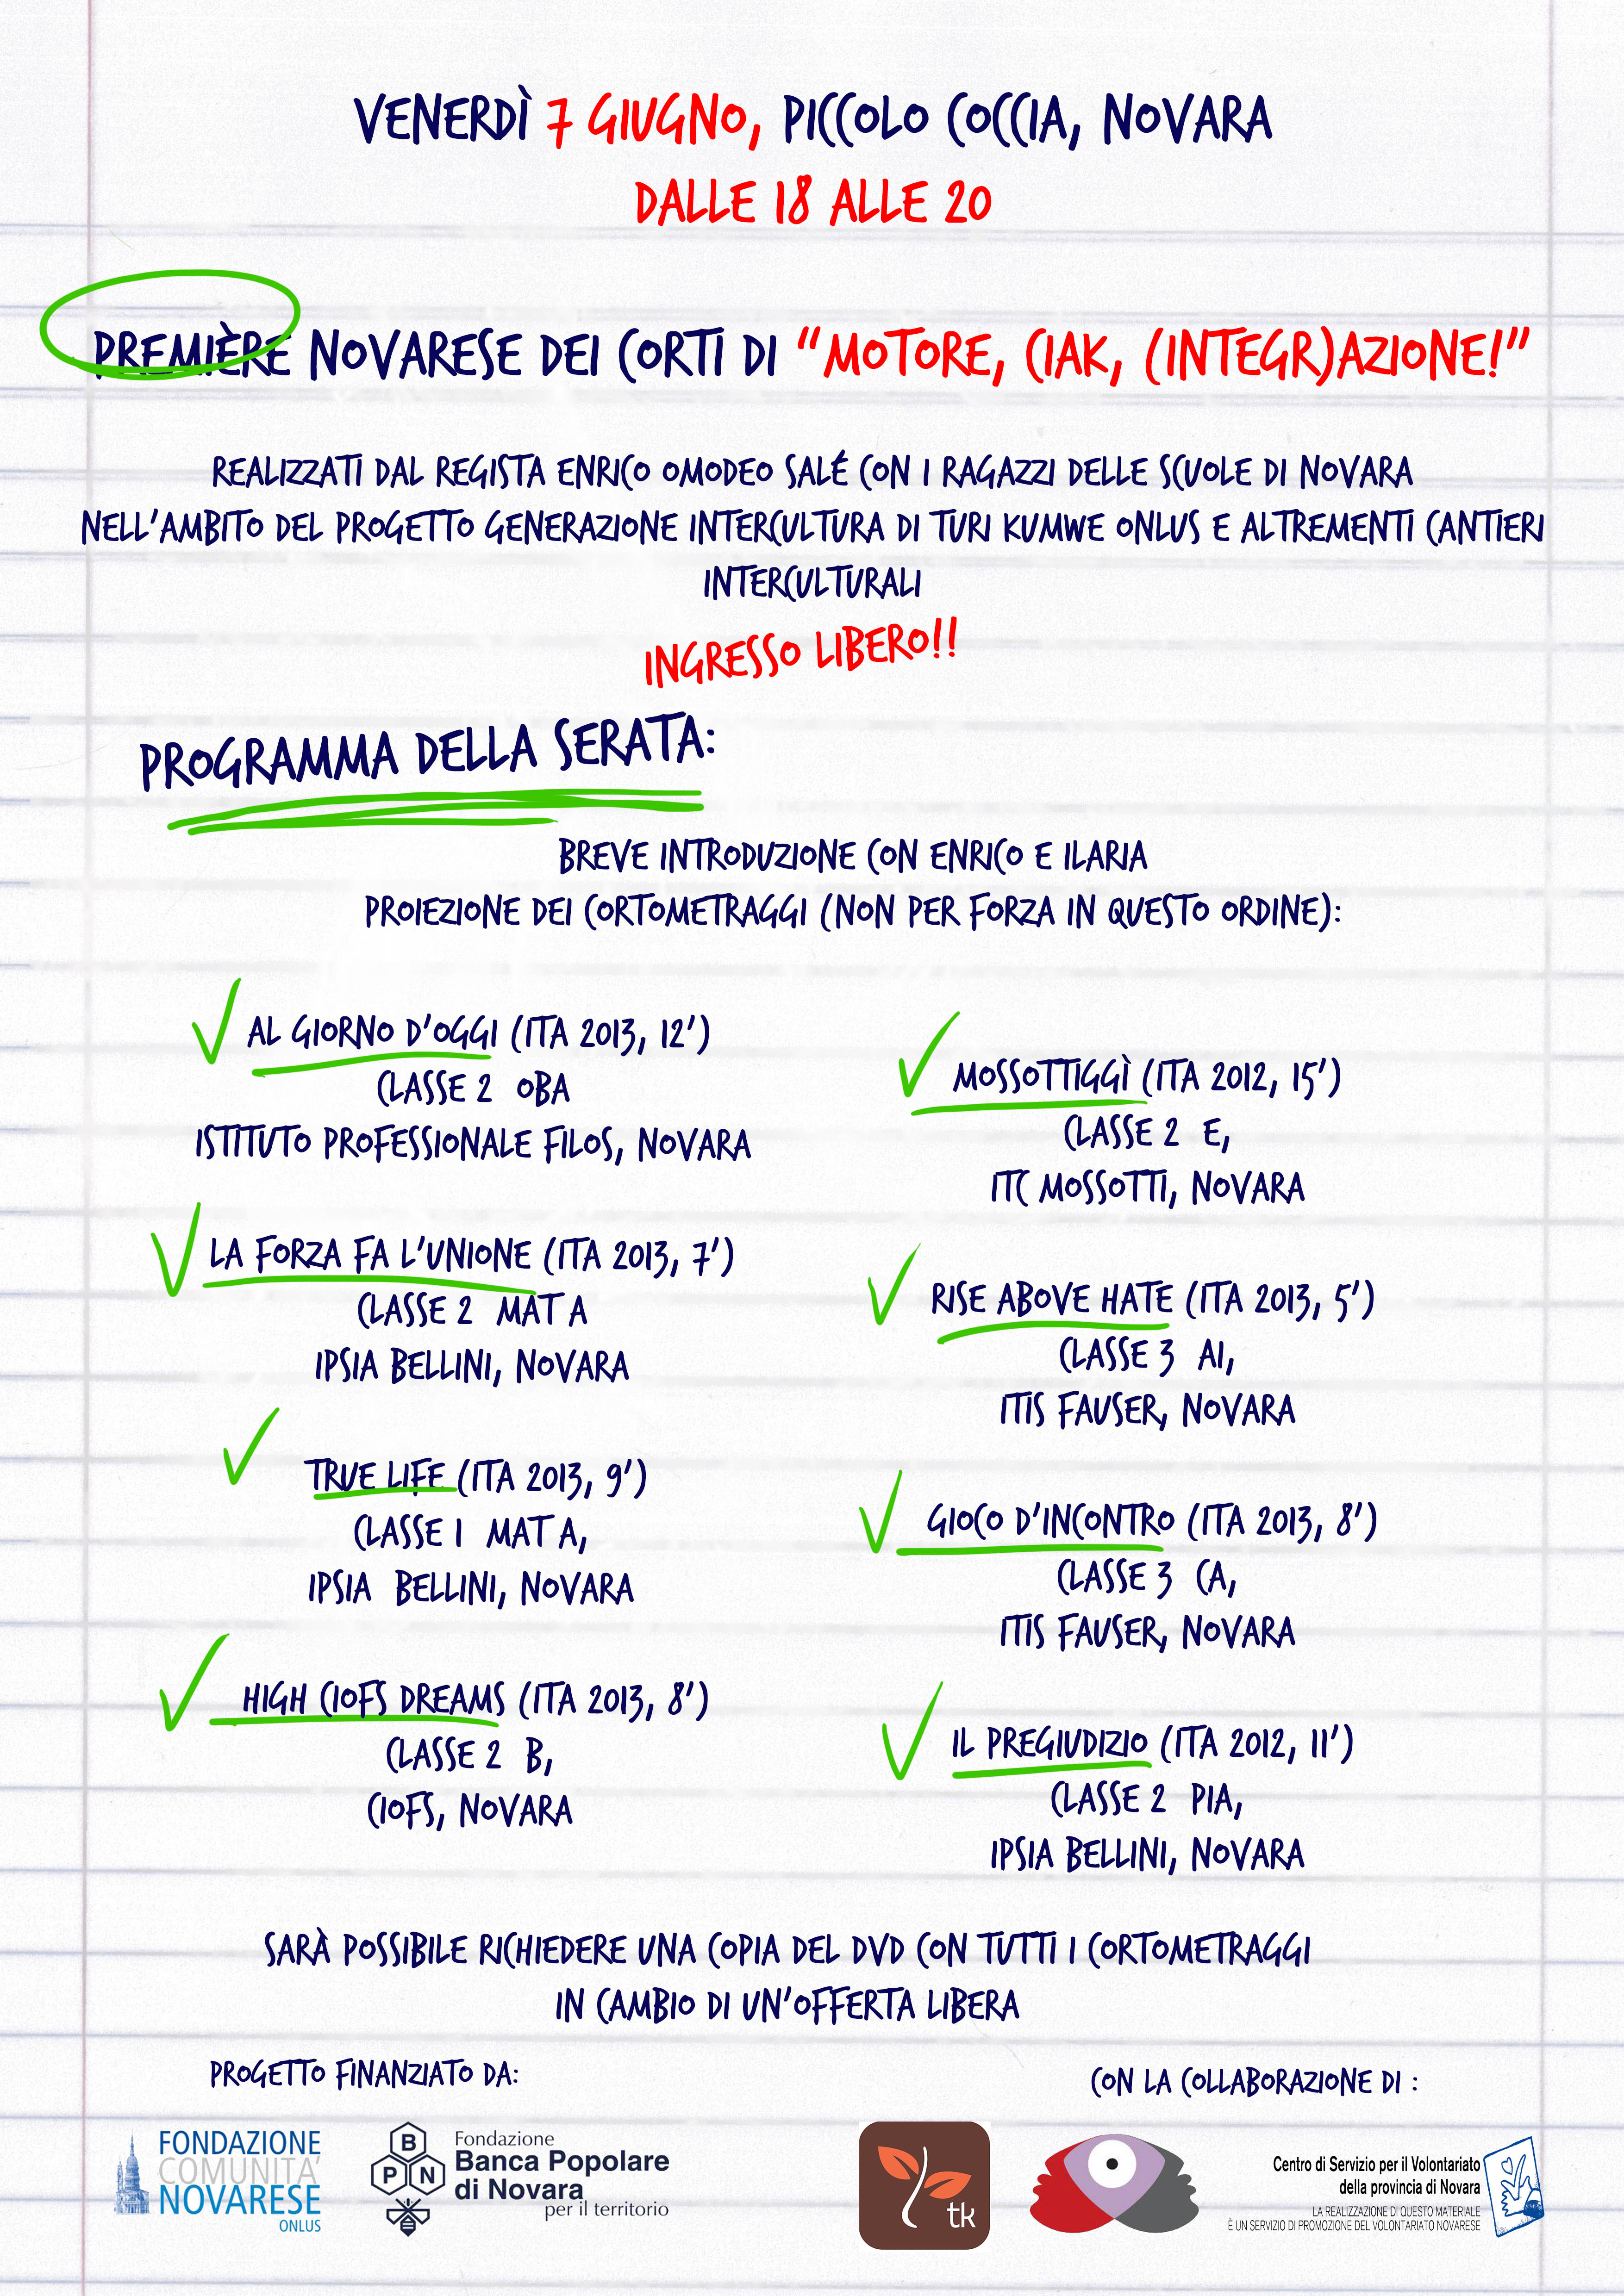 VENERDÌ 7 GIUGNO, PICCOLO COCCIA, NOVARA
DALLE 18 ALLE 20
PREMIÈRE NOVARESE DEI CORTI DI "MOTORE, CIAK, (INTEGR)AZIONE!"
REALIZZATI DAL REGISTA ENRICO OMODEO SALÉ CON I RAGAZZI DELLE SCUOLE DI NOVARA
NELL'AMBITO DEL PROGETTO GENERAZIONE INTERCULTURA DI TURI KUMWE ONLUS E ALTREMENTI CANTIERI
INTERCULTURALI
INGRESSO LIBERO!!
PROGRAMMA DELLA SERATA:
BREVE INTRODUZIONE CON ENRICO E ILARIA
PROIEZIONE DEI CORTOMETRAGGI (NON PER FORZA IN QUESTO ORDINE):
AL GIORNO D'OGGI (ITA 2013, 12')
CLASSE 2 OBA
ISTITUTO PROFESSIONALE FILOS, NOVARA
LA FORZA FA L'UNIONE (ITA 2013, 7')
CLASSE 2 MAT A
IPSIA BELLINI, NOVARA
TRUE LIFE (ITA 2013, 9')
CLASSE 1 MAT A,
IPSIA BELLINI, NOVARA
HIGH CIOFS DREAMS (ITA 2013, 8')
CLASSE 2 B,
CIOFS, NOVARA
MOSSOTTIGGÌ (ITA 2012, 15')
CLASSE 2 E,
ITC MOSSOTTI, NOVARA
RISE ABOVE HATE (ITA 2013, 5')
CLASSE 3 AI,
ITIS FAUSER, NOVARA
GIOCO D'INCONTRO (ITA 2013, 8')
CLASSE 3 CA,
ITIS FAUSER, NOVARA
IL PREGIUDIZIO (ITA 2012, 11')
CLASSE 2 PIA,
IPSIA BELLINI, NOVARA
SARÀ POSSIBILE RICHIEDERE UNA COPIA DEL DVD CON TUTTI I CORTOMETRAGGI
IN CAMBIO DI UN'OFFERTA LIBERA
PROGETTO FINANZIATO DA:
FONDAZIONE
COMUNITA'
NOVARESE
ONLUS
B
P N
Fondazione
Banca Popolare
di Novara
per il territorio
CON LA COLLABORAZIONE DI :
tk
Centro di Servizio per il Volontariato
della provincia di Novara
LA REALIZZAZIONE DI QUESTO MATERIALE
È UN SERVIZIO DI PROMOZIONE DEL VOLONTARIATO NOVARESE